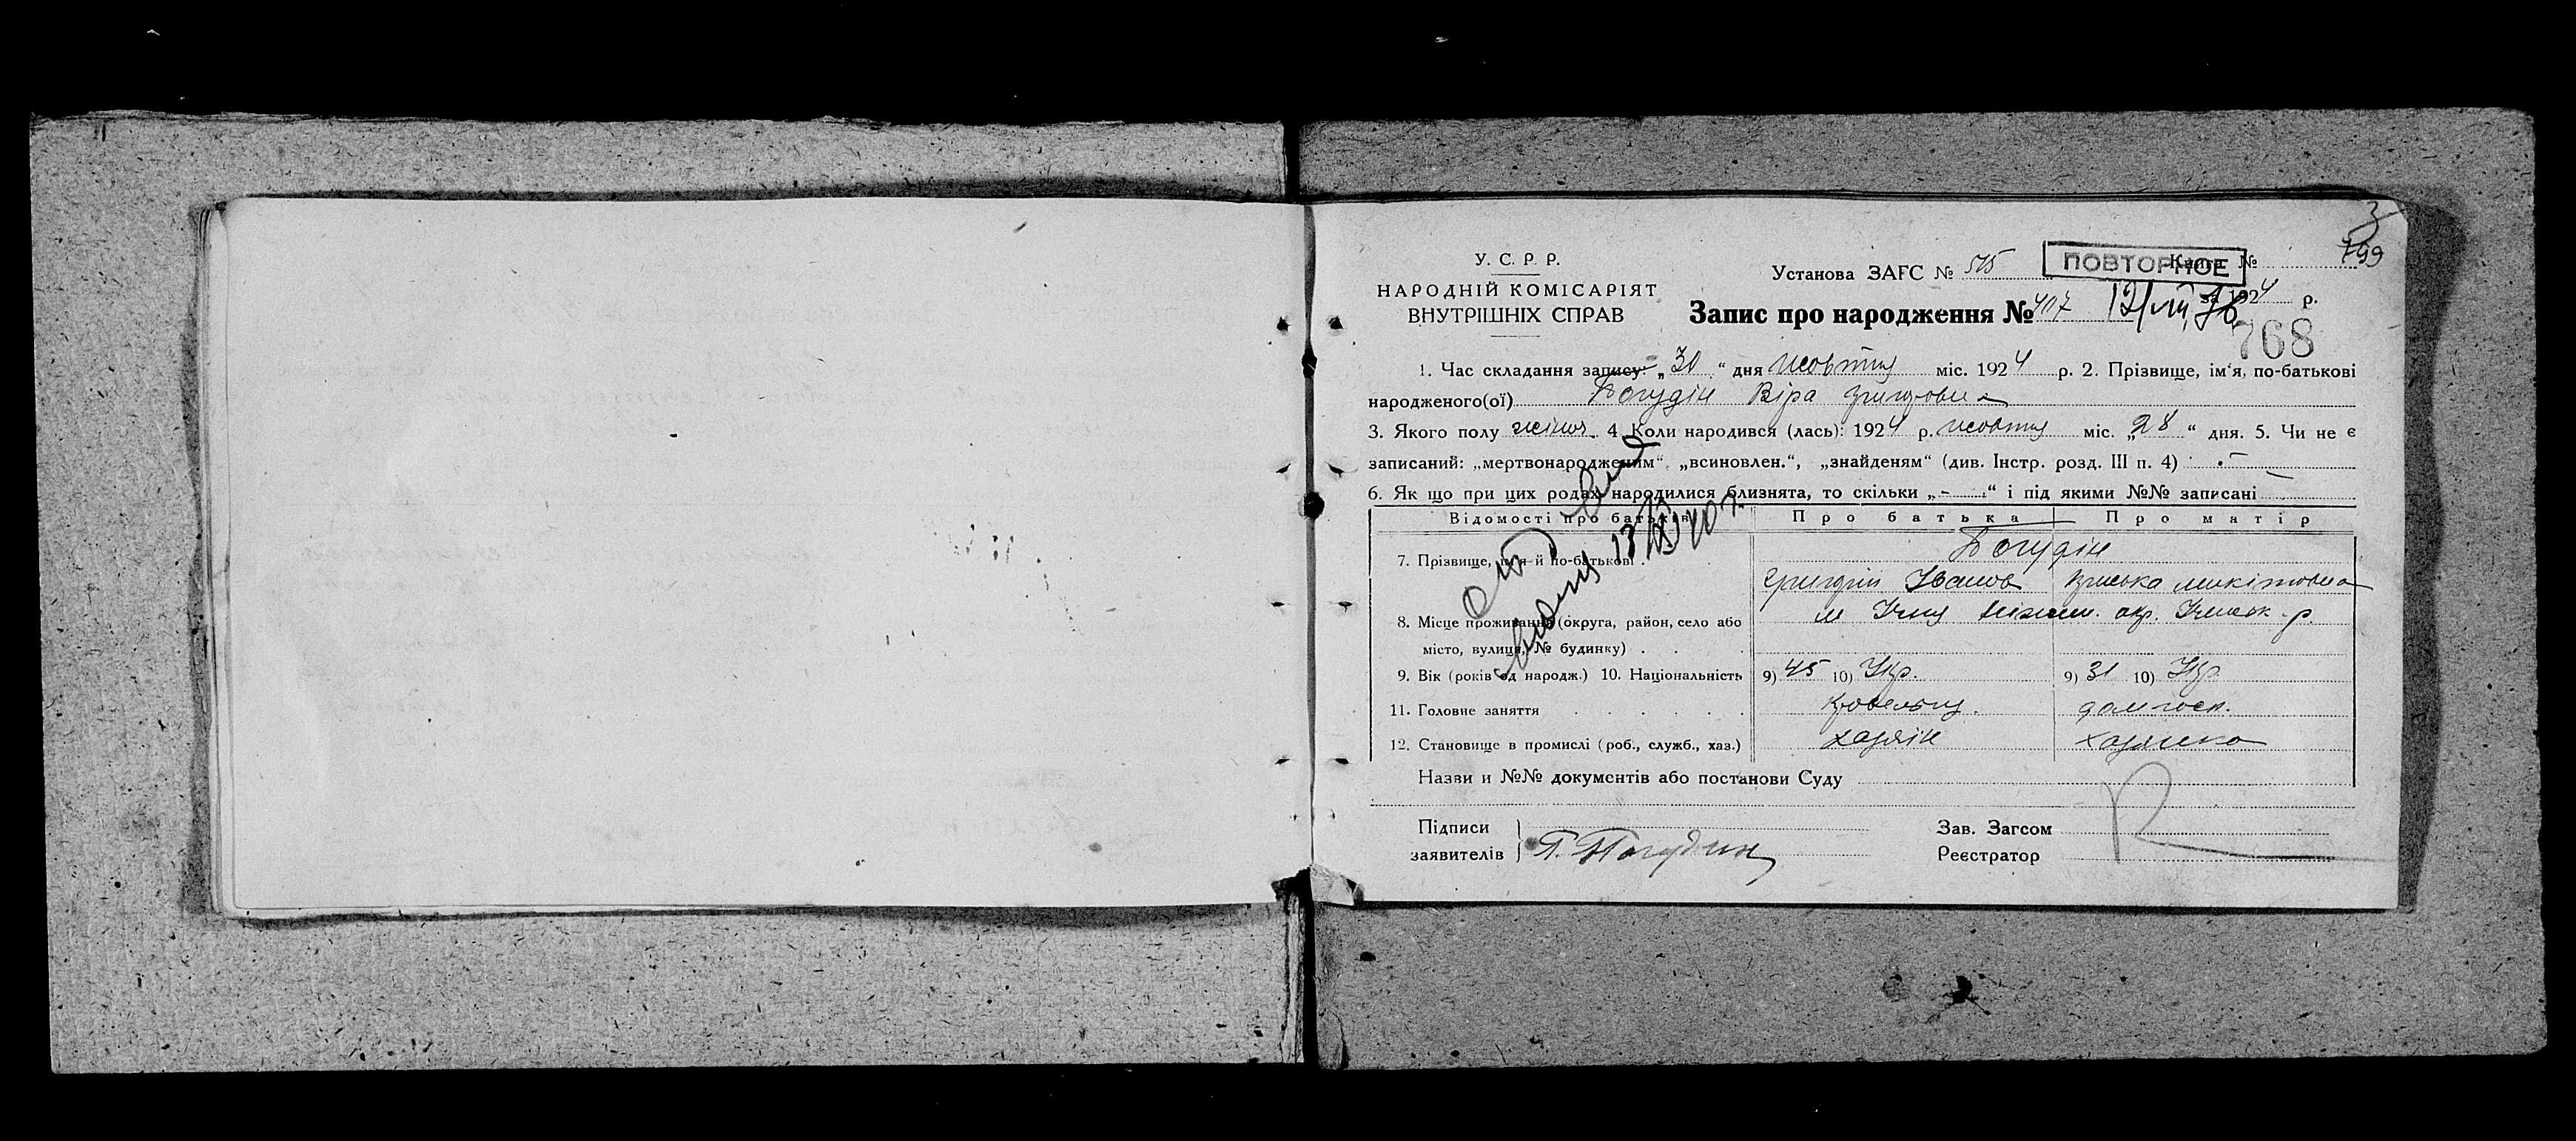 3
799
У. С. Р. Р.
НАРОДНІЙ КОМІСАРІЯТ
ВНУТРІШНІХ СПРАВ
Установа ЗАГС № 515 Книга №
ПОВТОРНОЕ
Запис про народження № 407 за 1924 р.
768
1. Час складання запису: „30“ дня жовтня міс. 1924 р. 2. Прізвище, ім'я, по-батькові
народженого(ої) Погудін Віра Григоровна
3. Якого полу жіноч. 4. Коли народився (лась): 1924 р. жовтня міс. „28“ дня. 5. Чи не є
записаний: „мертвонародженим“ „всиновлен.“, „знайденям“ (див. Інстр. розд. III п. 4) -
6. Як що при цих родах народилися близнята, то скільки „-“ і під якими №№ записані
Відомості про батьків Про батька Про матір
Погудін
7. Прізвище, ім'я й по-батькові
Григорій Іванов Микітовна
8. Місце проживання (округа, район, село або
місто, вулиця, № будинку)
9. Вік (років од народж.) 10. Національність 9) 45 10) Укр. 9) 31 10) Укр.
11. Головне заняття домгосп.
12. Становище в промислі (роб., служб., хаз.) хазяін хазяйка
Назви и №№ документів або постанови Суду
Підписи
заявителів Г. Погудин
Зав. Загсом
Реєстратор